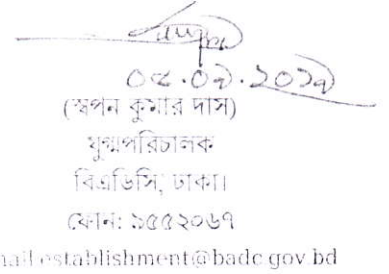 (স্বপন কুমার দাস)
যুগ্মপরিচালক
বিএডিসি, ঢাকা।
ফোন: ৯৫৫২০৬৭
mail.establishment@badc.gov.bd